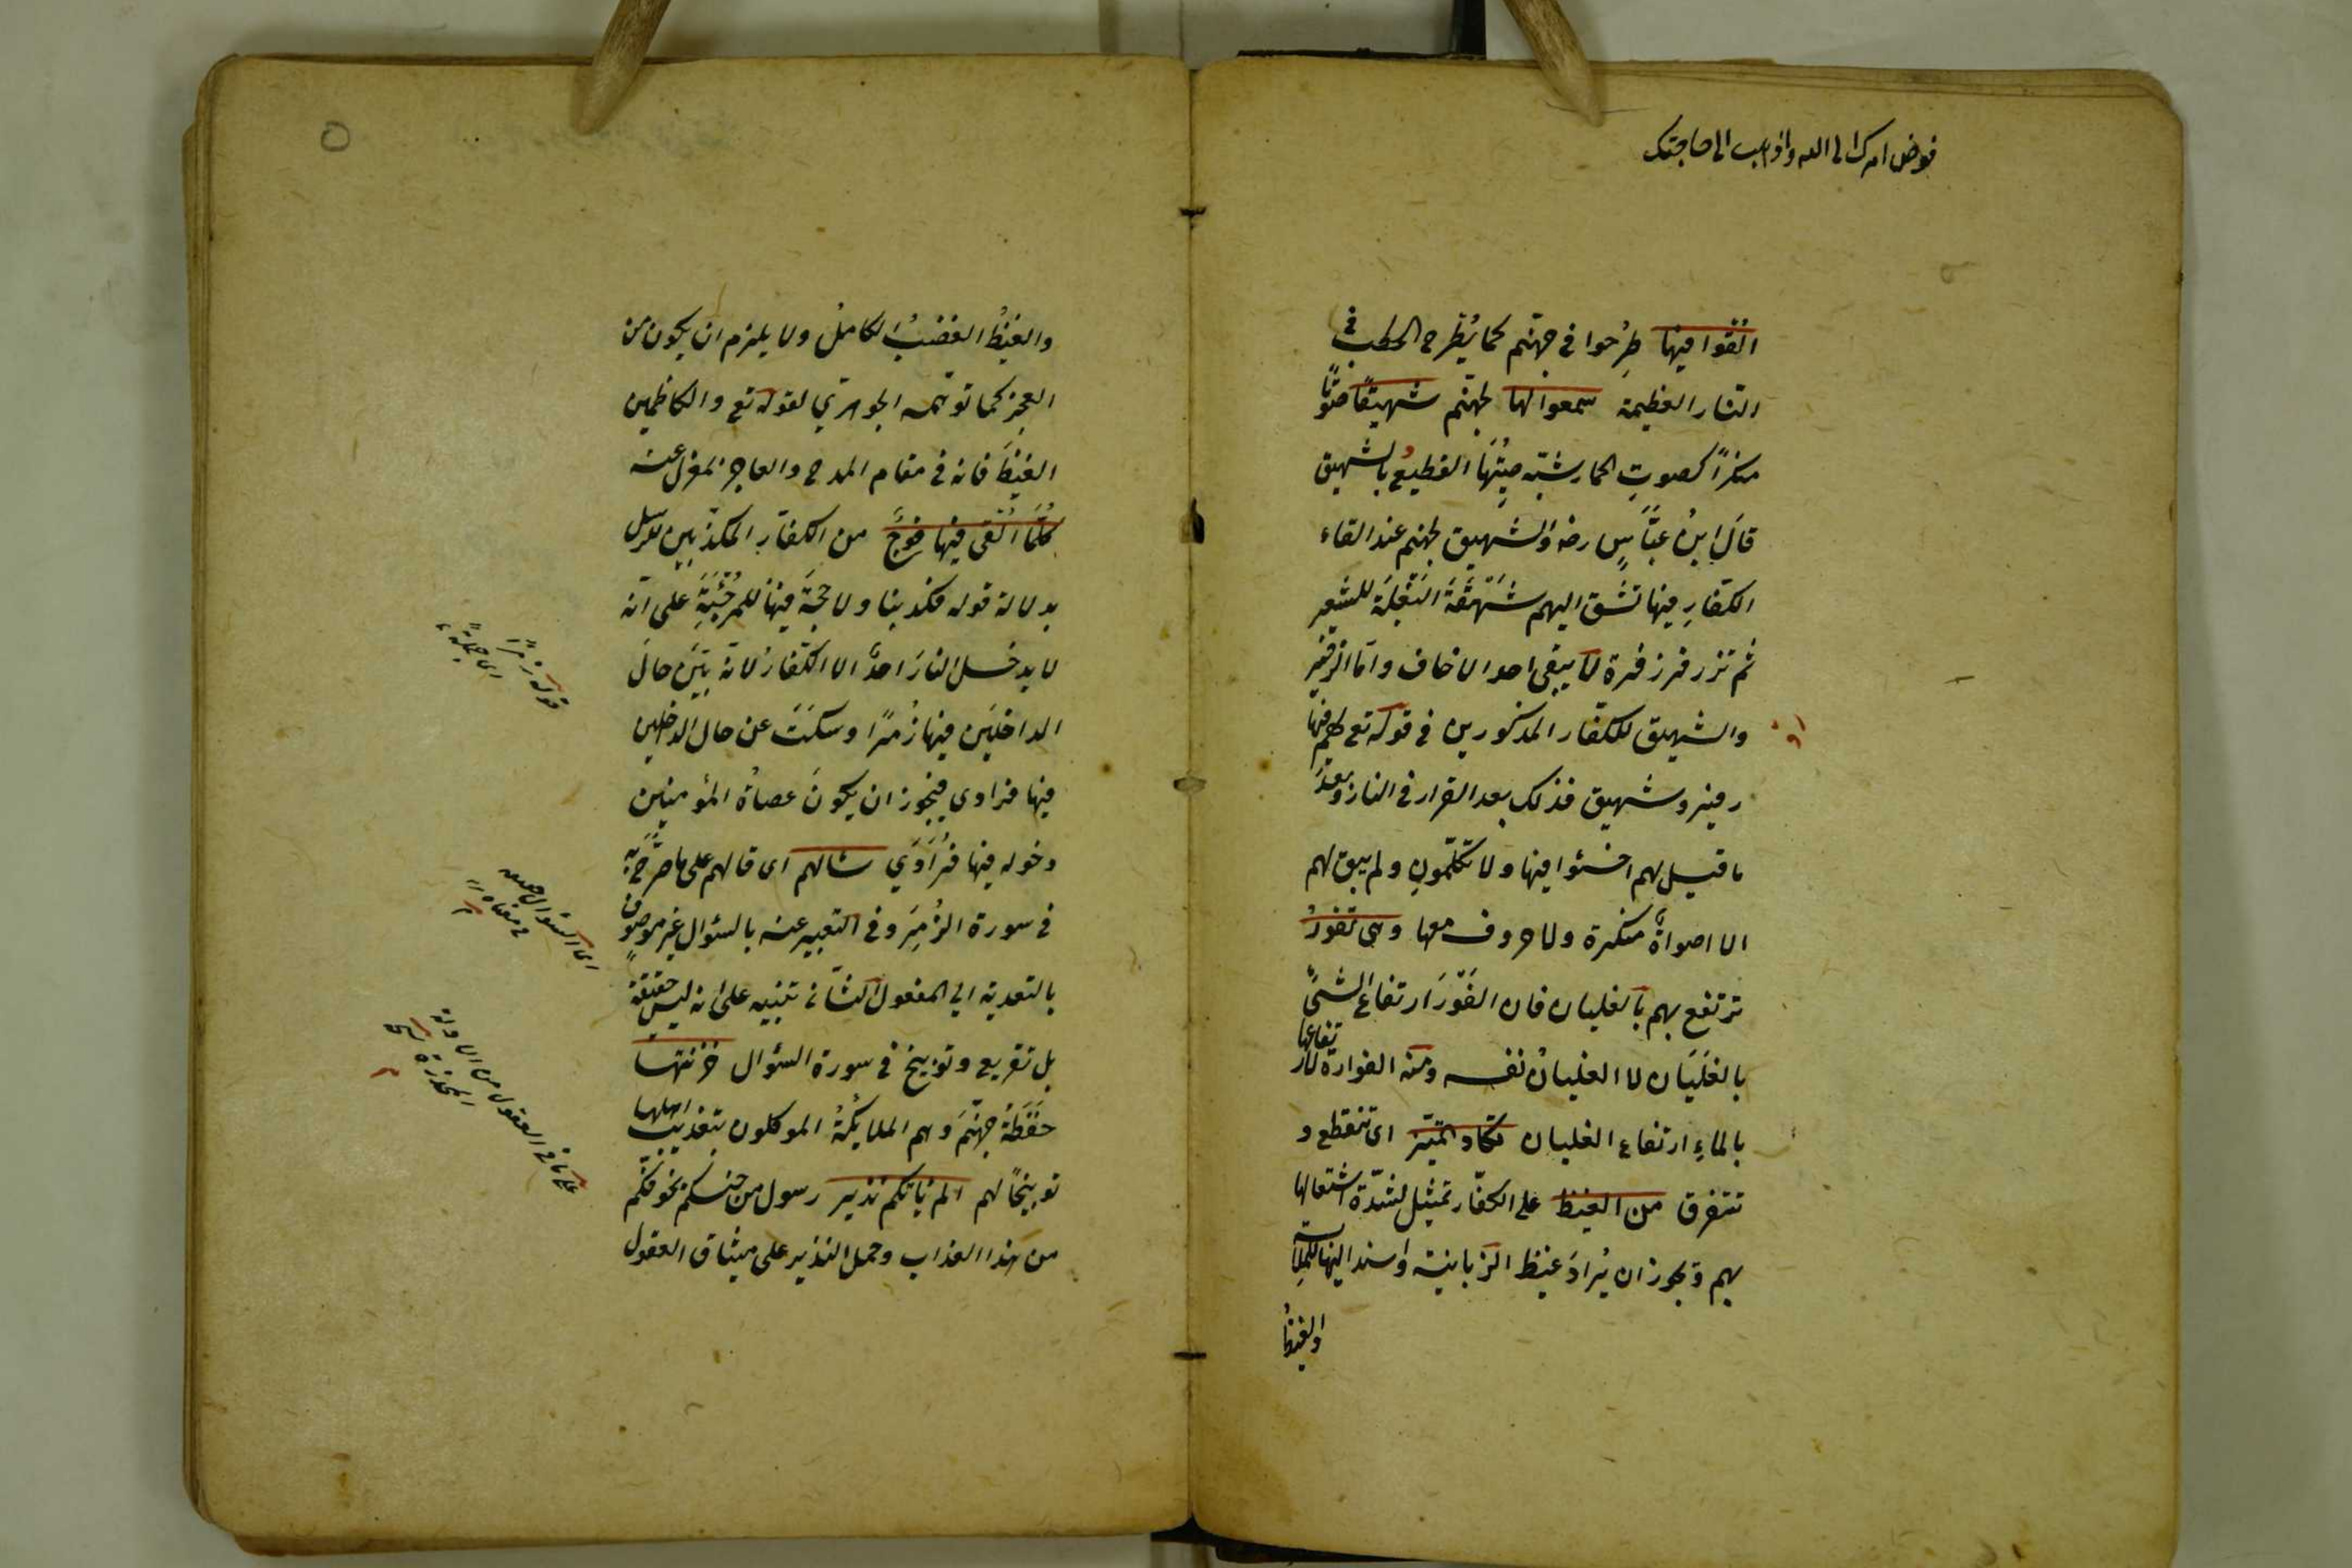 فوض امرك الى الله واذهب الى حاجتك
اُلْقُوا فيها طُرِحُوا في جهنّم كما يُطْرح الحطب في
النّار العظيمة سمعوا لها لجهنّم شهيقًا صَوْتًا
منكرًا كصوتِ الحمار شبّه صِيتُهَا الفظيعُ بالشهيق
قالَ ابنُ عبّاسٍ رضه والشهيق لجهنم عند القاء
الكفّارِ فيها تشهق اليهم شَهْقَةَ البَغْلَة للشعير
ثم تزفر زفرة لا يبقى احد الا خاف وامّا الزفير
والشهيق للكفّار المذكورين في قوله تع لهم فيها
زفير وشهيق فذلك بعد القرار في النار وبعدَ
ما قيل لهم اخسئوا فيها ولا تكلّمونِ ولم يبق لهم
الا اصواةٌ منكرة ولا حروف معها وهى تفورُ
ترتفع بهم بالغليان فان الفَوْرَ ارتفاع الشئِ
بالغَلَيَان لا الغليانُ نفسه ومنه الفوارة لارتفاعها
بالماءِ ارتفاع الغليان تكاد تميّز اى تنقطع و
تتفرق من الغيظ على الكفّار تمثيل لشدّة اشتعالها
بهم ويجوز ان يُرادَ غيظ الزبانية واسند اليها للملابسة
والغيظُ
والغيظُ الغضبُ الكاملُ ولا يلزم ان يكون من
العجز كما توهّمه الجوهريّ لقوله تع والكاظمين
الغيظَ فانه في مقام المدح والعاجز بمعزل عنه
كُلَّمَا اُلْقِىَ فيها فَوْجٌ من الكفّارِ المكذّبين للرسل
بدلالة قوله فكذبنا ولا حجّةَ فيها للمرجِئَةِ على انه
لا يدخل النارَ احدٌ الا الكفّارُ لانه بيّنَ حالَ
الداخلين فيها زُمَرًا وسكتَ عن حال الداخلين
فيها فرادى فيجوز ان يكونَ عصاةُ المؤمنين
دخوله فيها فُرَادَى سألهم اى قال لهم على ما صرّح به
في سورة الزُّمَرِ وفي التعبير عنه بالسئوال غيرَ موصوفٍ
بالتعدية الى المفعول الثانى تنبيه على انه ليس حقيقةً
بل تقريع وتوبيخ في سورة السئوال خزنتها
حَفَظَةُ جهنّمَ وهم الملايكةُ الموكلون بتعذيب اهلها
توبيخًا لهم الم يأتكم نذير رسول من جنسكم يخوفكم
من هذا العذاب وحمل النذير على ميثاق العقول
قوله زمرًا
اى جملةً
اى السئوال
في معناه
على ما في العقول من الادلة
المحذرة